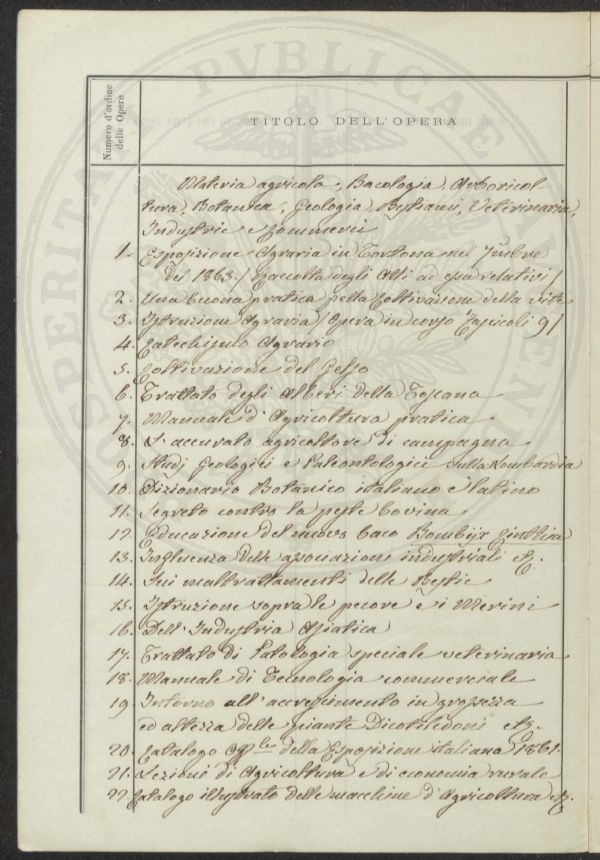 PERITAT PUBLICAE
Numero d'ordine
delle Opere
TITOLO DELL'OPERA
Materia agricola, Bacologia, Arboricol
tura, Botanica, Geologia, Bestiami, Veterinaria,
Industrie e Commerci
1. Esposizione Agraria in Tortona nel 7mbre
del 1863. / Raccolta degli Atti ad essa relativi /
2. Una buona pratica nella Coltivazione della vite
3. Istruzione Agraria / Opera in corso Fascicoli 9 /
4. Catechismo Agrario
5. Coltivazione del Gelso
6. Trattato degli Alberi della Toscana
7. Manuale d'Agricoltura pratica
8. L'accurato agricoltore di campagna
9. Studj Geologici e Paleontologici sulla Lombardia
10. Dizionario Botanico italiano e latino
11. Segreto contro la peste bovina
12. Educazione del nuovo baco Bombijx Cinthia
13. Influenza delle associazioni industriali
14. Sui maltrattamenti delle Bestie
15. Istruzione sopra le pecore e i Merini
16. Dell'Industria Asiatica
17. Trattato di Patologia speciale veterinaria
18. Manuale di Tecnologia commerciale
19 Intorno all'accrescimento in grossezza
ed altezza delle piante Dicotiledoni
20. Catalogo Off.le della Esposizione italiana 1861.
21. Lezioni di Agricoltura e di economia rurale
22. Catalogo illustrato delle macchine d'Agricoltura